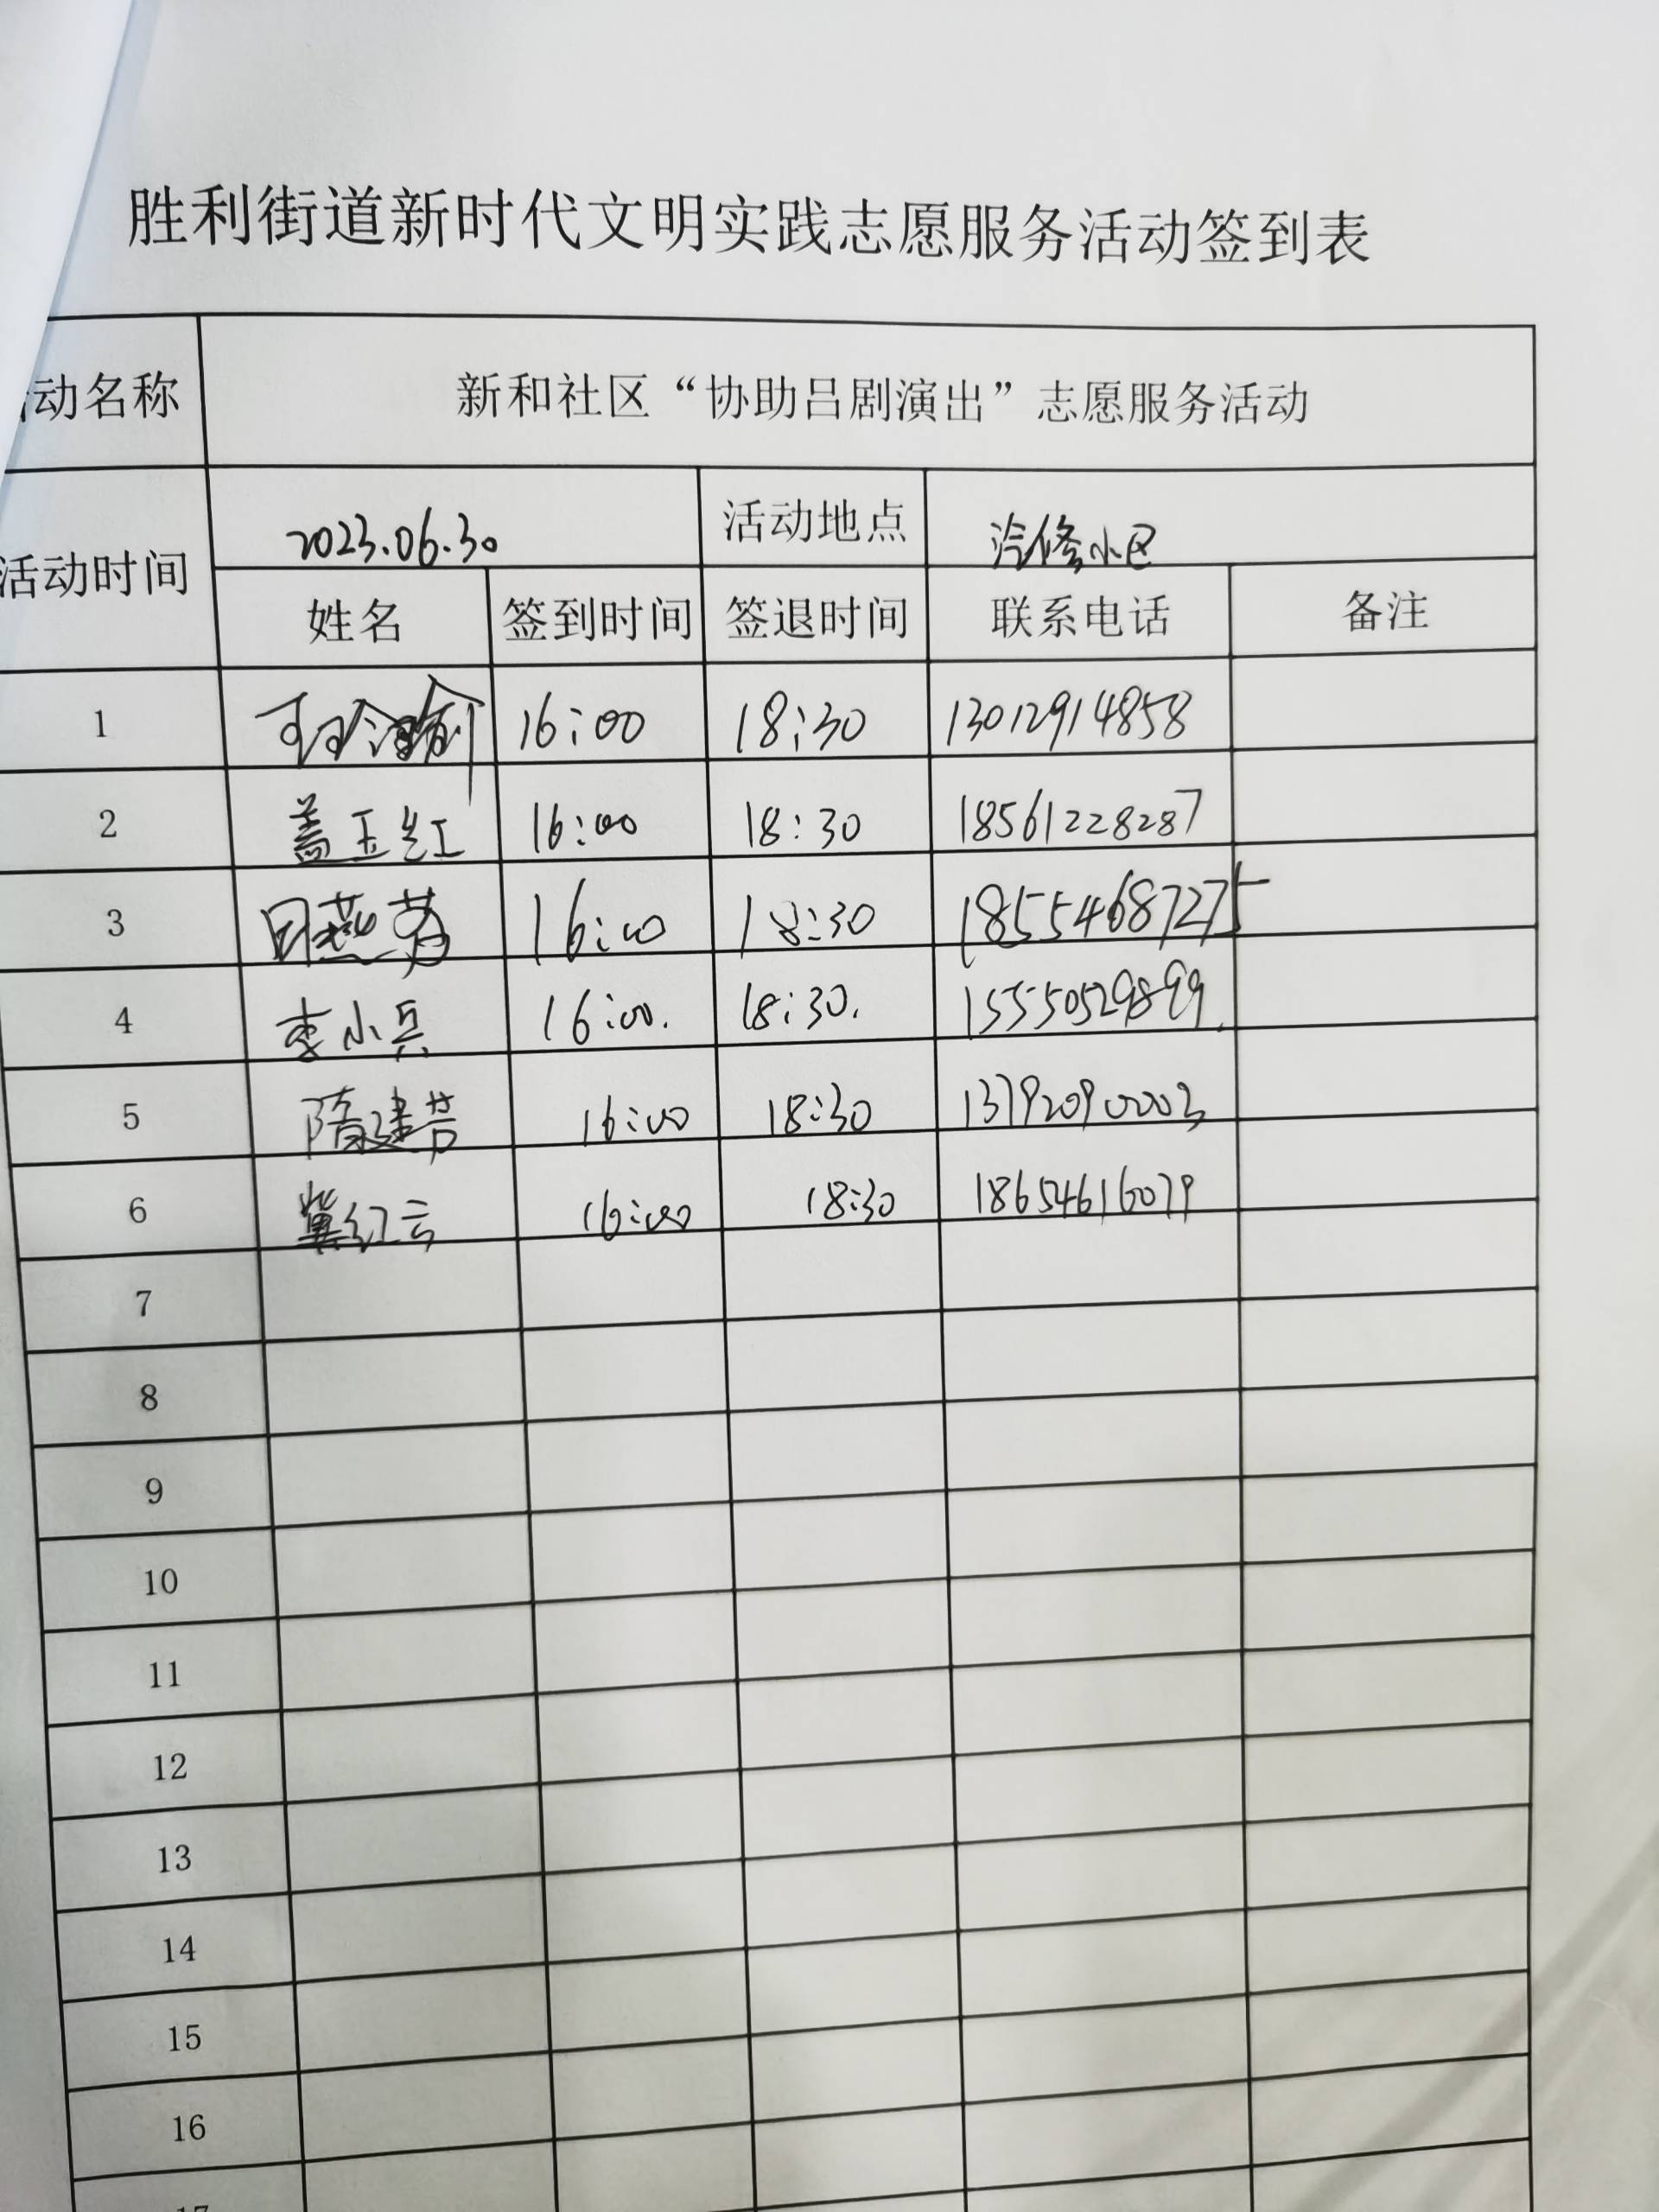 胜利街道新时代文明实践志愿服务活动签到表
动名称 新和社区“协助吕剧演出”志愿服务活动
活动时间 2023.06.30 活动地点 汽修小区
姓名 签到时间 签退时间 联系电话 备注
1 16:00 18:30 13012914858
2 盖玉红 16:00 18:30 18561228287
3 16:00 18:30 18554687275
4 李小兵 16:00. 18:30. 15550529899.
5 隋建芳 16:00 18:30 13792090003
6 冀红云 16:00 18:30 18654616079
7
8
9
10
11
12
13
14
15
16
17